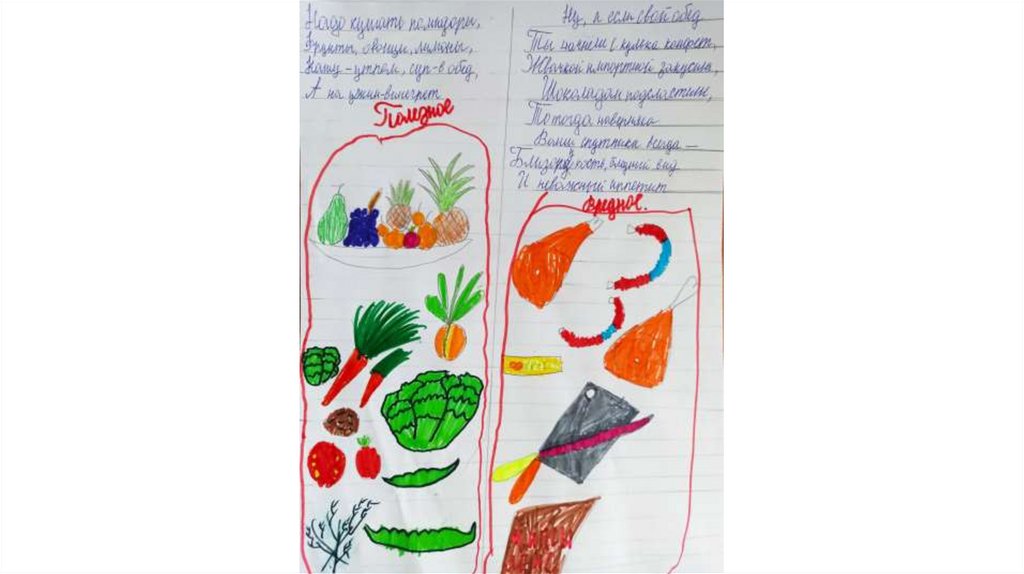 Надо кушать помидоры,
Фрукты, овощи, лимоны,
Кашу - утром, суп - в обед,
А на ужин - винегрет
Полезное
Ну, а если свой обед
Ты начнёшь с кулька конфет,
Жвачкой импортной закусишь,
Шоколадом подсластишь,
То тогда наверняка
Ваши спутники всегда —
Близорукость, бледный вид
И неважный аппетит
Вредное.